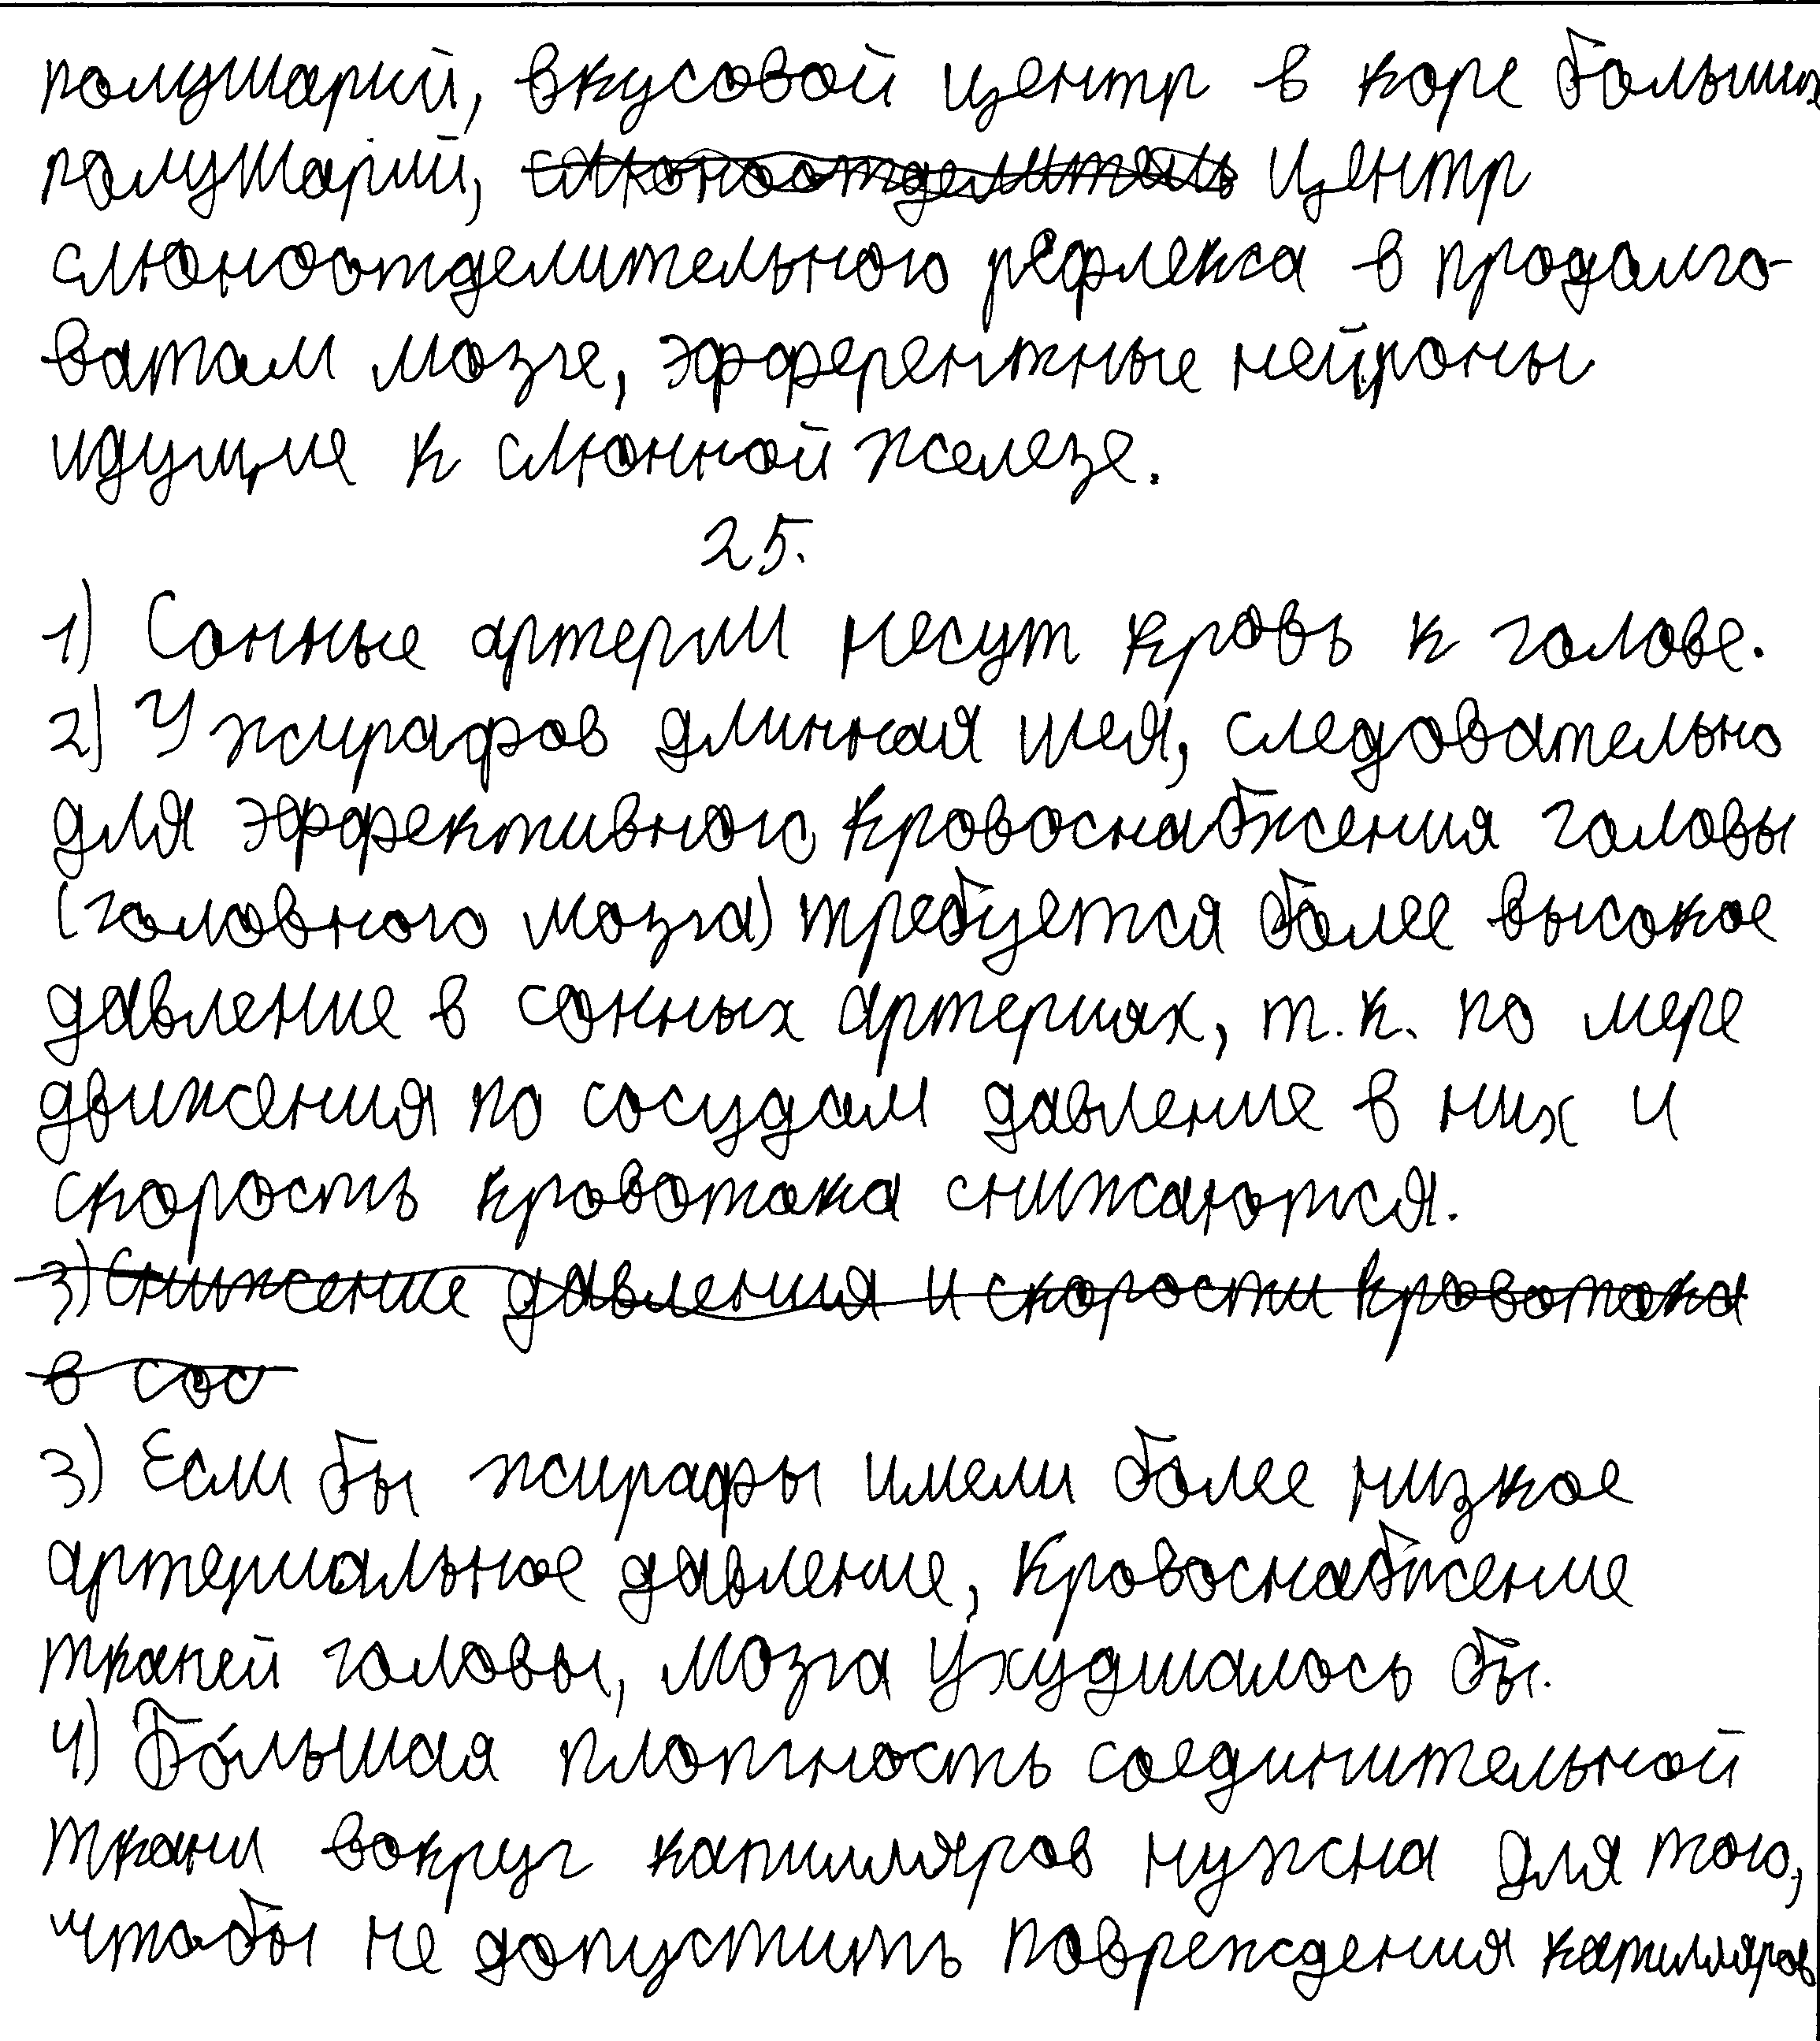 полушарий, вкусовой центр в коре больших
полушарий, слюноотделитель центр
слюноотделительного рефлекса в продолго-
ватом мозге, эфферентные нейроны
идущие к слюнной железе.
25.
1) Сонные артерии несут кровь к голове.
2) У жирафов длинная шея, следовательно
для эффективного кровоснабжения головы
(головного мозга) требуется более высокое
давление в сонных артериях, т.к. по мере
движения по сосудам давление в них и
скорость кровотока снижаются.
3) Снижение давления и скорости кровотока
в сос
3) Если бы жирафы имели более низкое
артериальное давление, кровоснабжение
тканей головы, мозга ухудшалось бы.
4) Бо́льшая плотность соединительной
ткани вокруг капилляров нужна для того,
чтобы не допустить повреждения капилляров